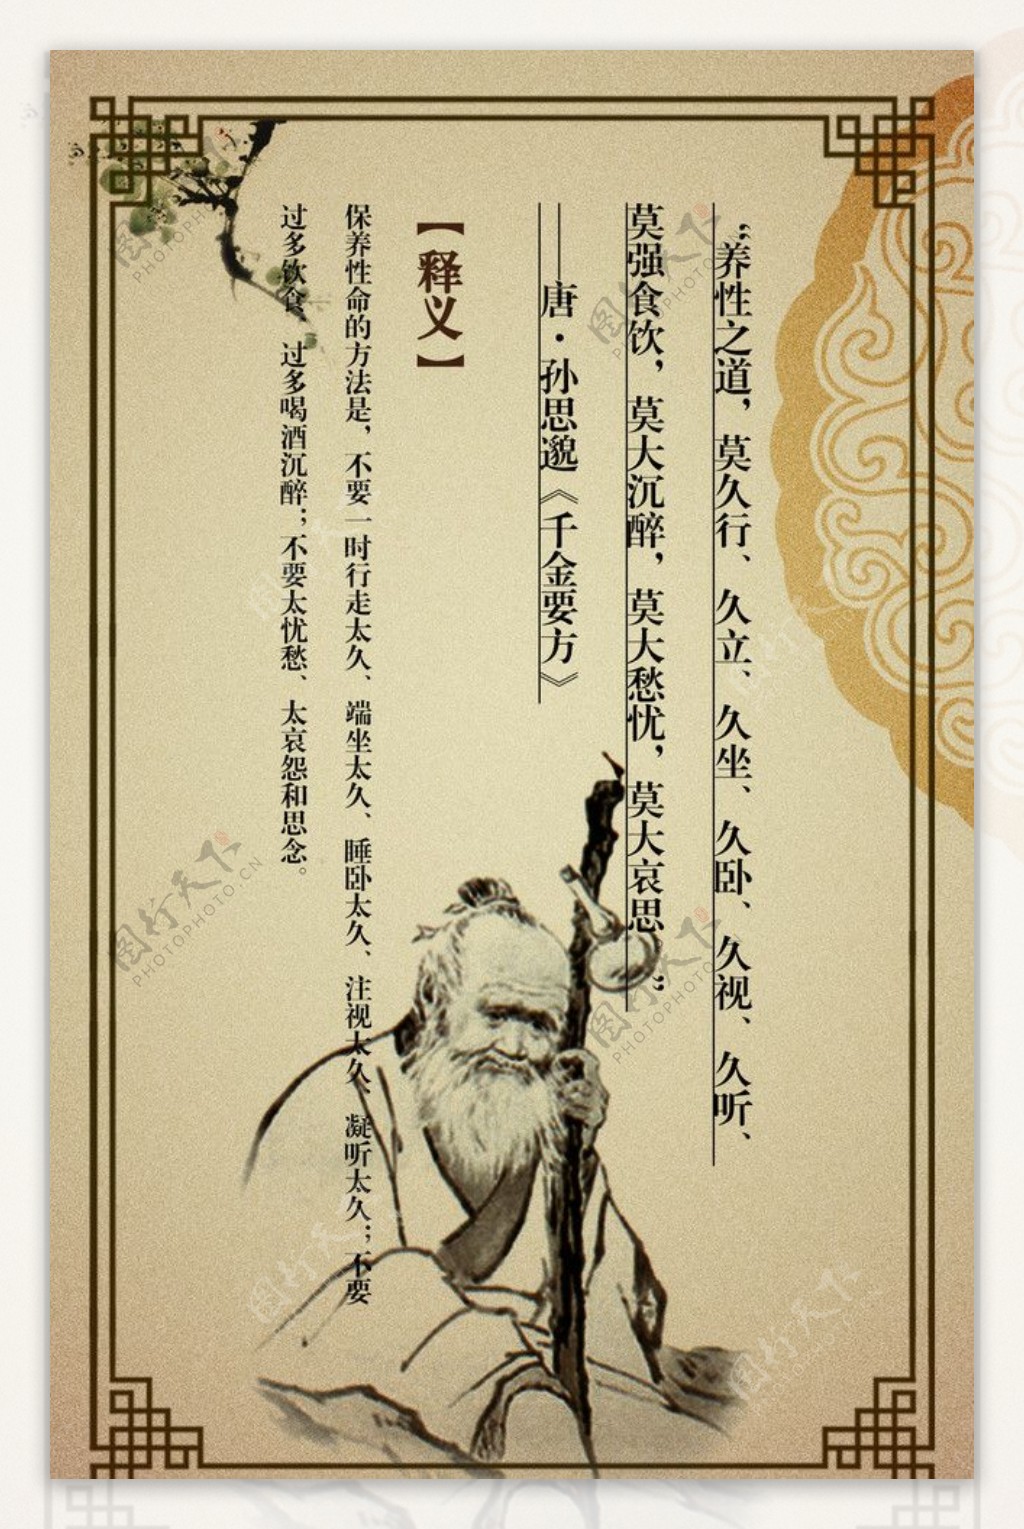 “养性之道，莫久行、久立、久坐、久卧、久视、久听、
莫强食饮，莫大沉醉，莫大愁忧，莫大哀思。”
——唐·孙思邈《千金要方》
【释义】
保养性命的方法是，不要一时行走太久、端坐太久、睡卧太久、注视太久、凝听太久；不要
过多饮食、过多喝酒沉醉；不要太忧愁、太哀怨和思念。
图行天下
PHOTOPHOTO.CN